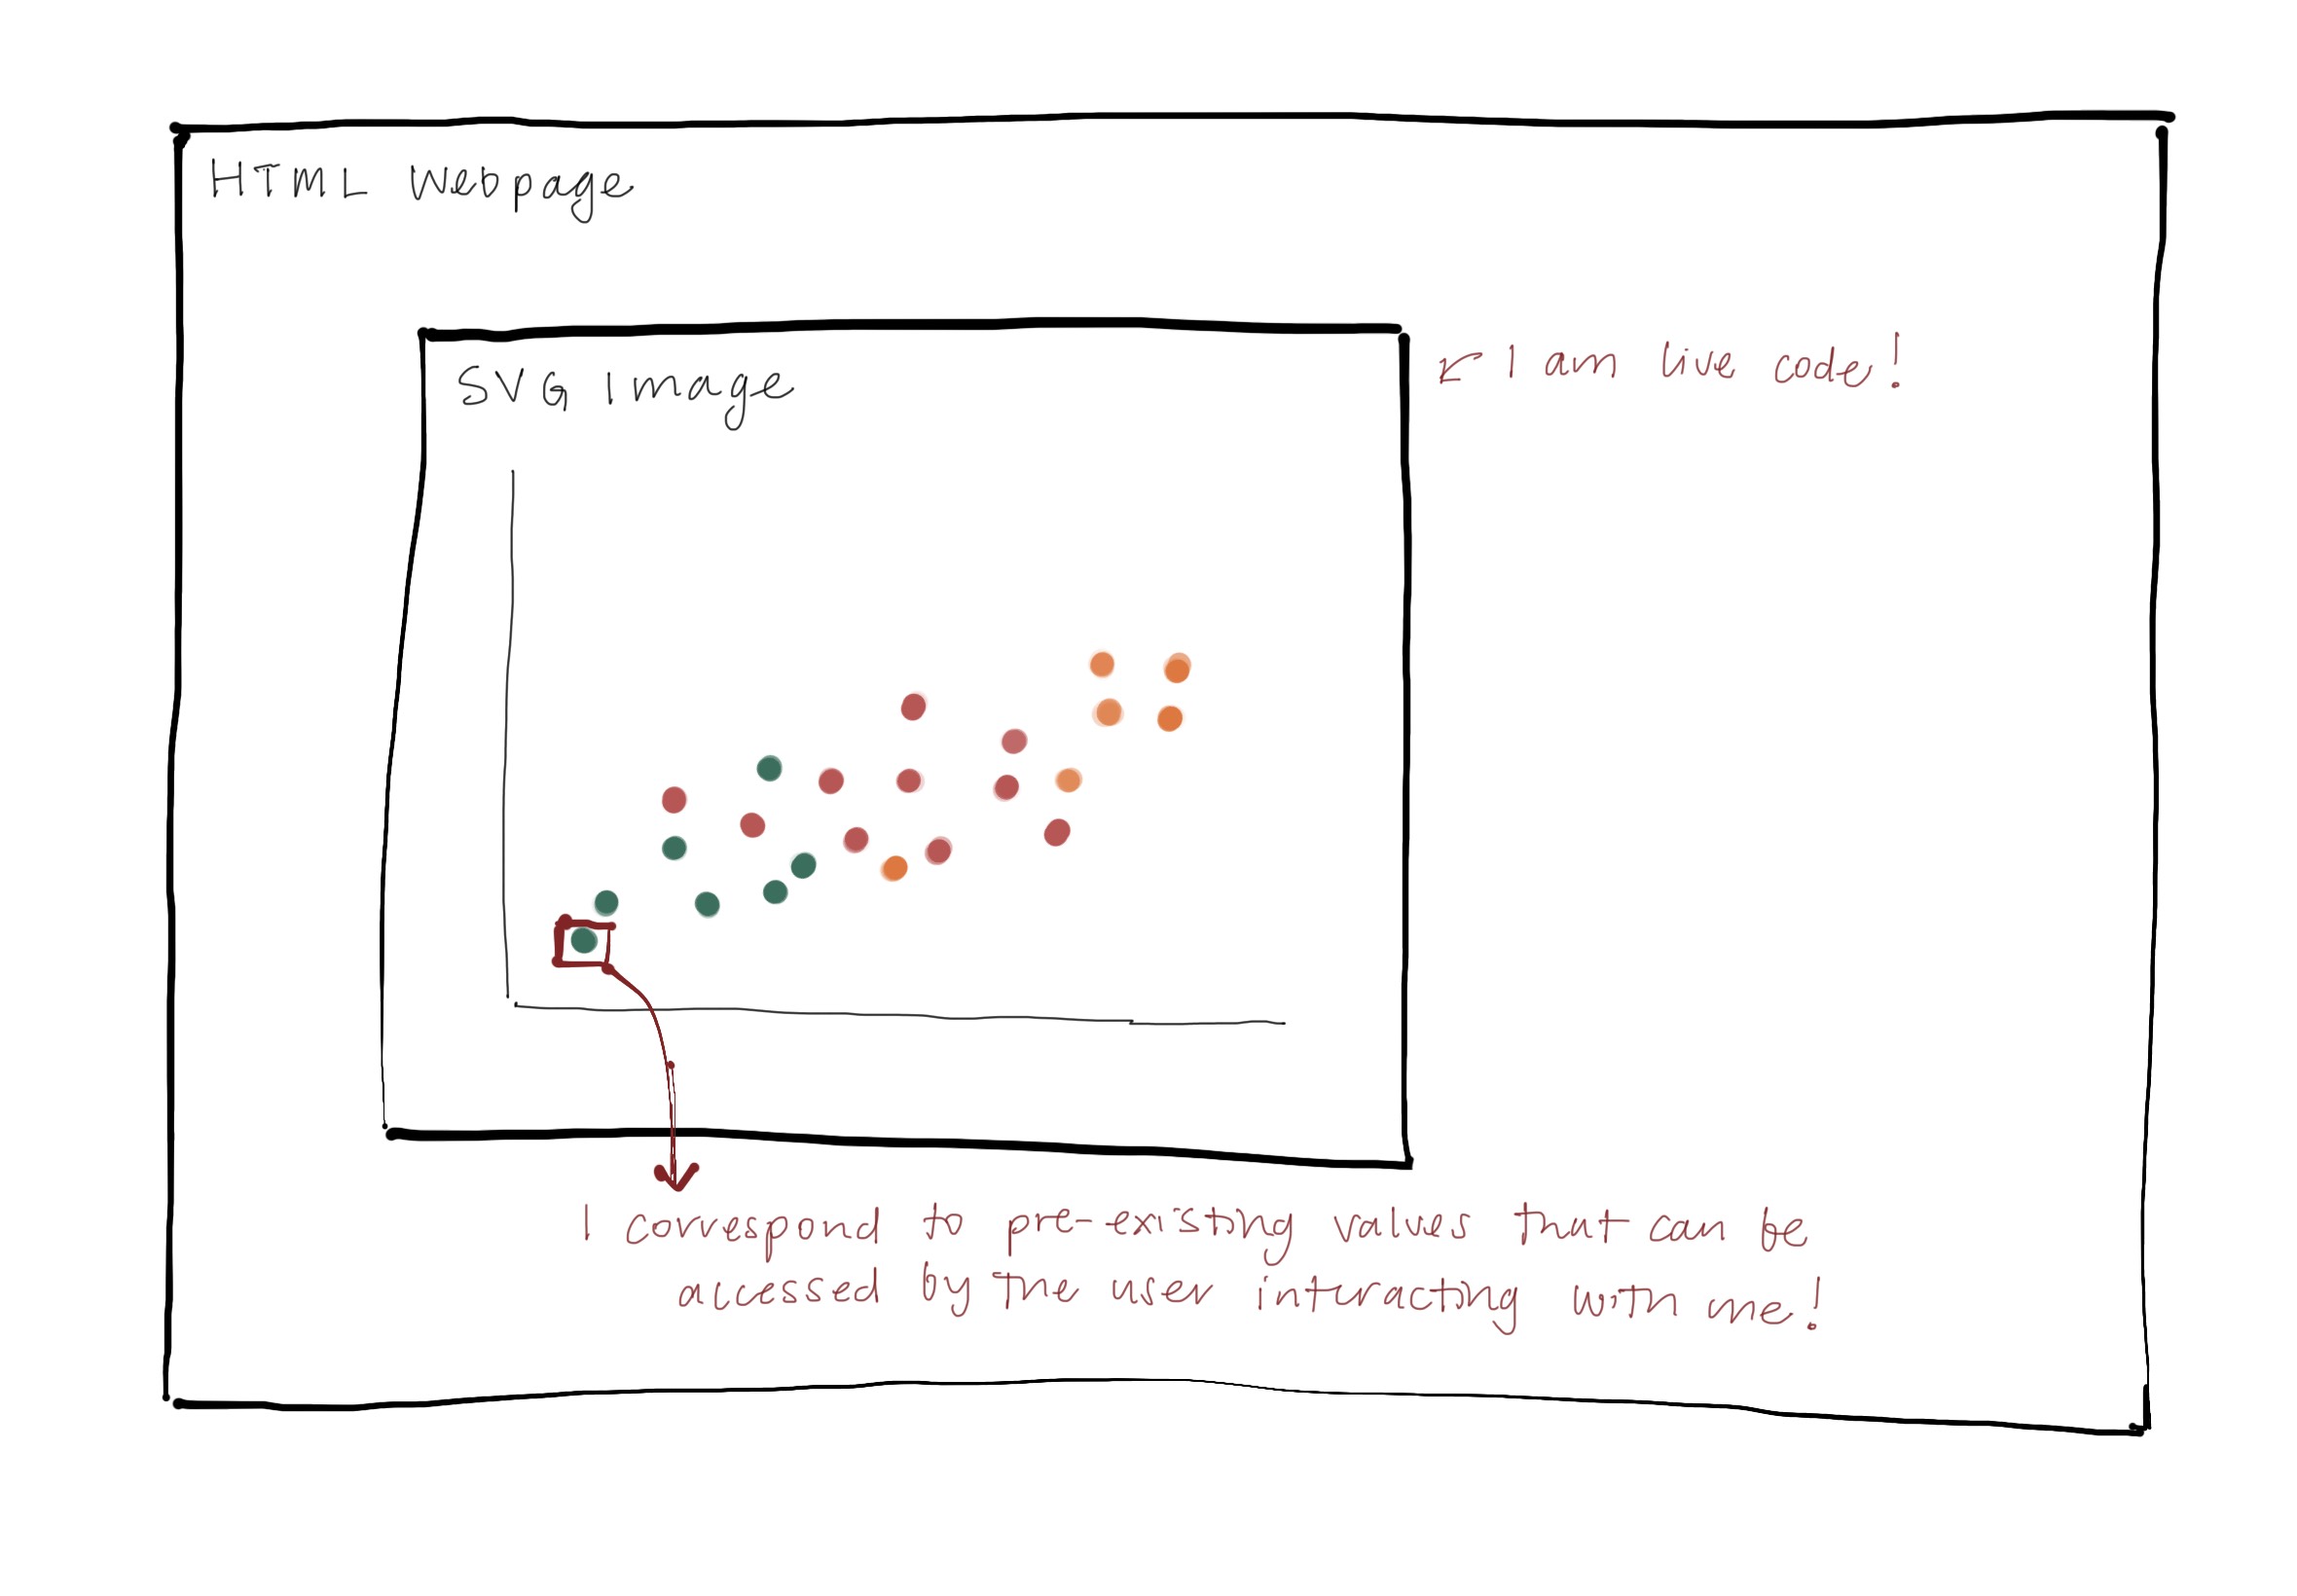 HTML Webpage
SVG Image
I am live code!
I correspond to pre-existing values that can be
accessed by the user interacting with me!